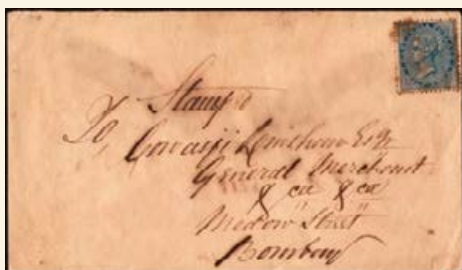 Stamped
To,
Cowasji Esqr
General Merchant
&ca &ca
Medow Street
Bombay